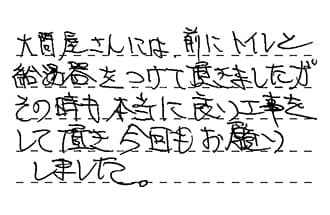 大問屋さんには、前にトイレと
給湯器をつけて頂きましたが
その時も本当に良い工事を
して頂き今回もお願い
しました。